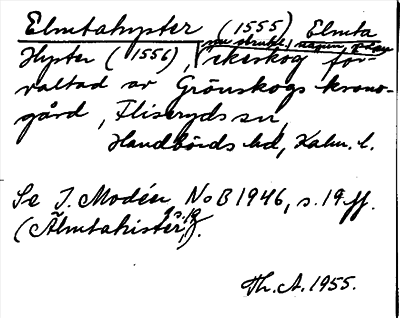 Elmtahyster (1555) Elmta
Hyster (1556), ekeskog för-
valtad av Grönskogs krono-
gård, Fliseryds sn,
Handbörds hd, Kalm. l.
Se I. Modéer, NoB 1946, s. 19 ff.
(Älmtahister, s. 19).
Th. A. 1955.